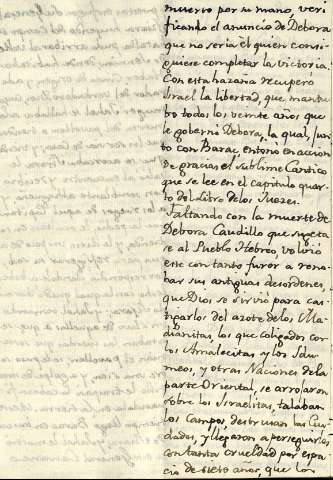 muerto por su mano, veri
ficando el anuncio de Debora
que no seria el quien consi
guiere completar la victoria.
Con esta hazaña recuperó
Israel la libertad, que mantu
bo todos los veinte años que
le gobernó Debora, la qual, jun
to con Barac entonó en accion
de gracias el sublime Cantico
que se lee en el capitulo quar
to del Libro de los Juezes.
Faltando con la muerte de
Debora Caudillo que sugeta
se al Pueblo Hebreo, volvió
este con tanto furor a reno
bar sus antiguas desordenes,
que Dios se sirvió para cas
tigarlos del azote de los Ma
dianitas, los que coligados con
los Amalecitas y los Idu
meos, y otras Naciones de la
parte Oriental, se arrojaron
sobre los Israelitas, talaban
los Campos, destruian las Ciu
dades, y llegaron a perseguirlos
con tanta crueldad por espa
cio de siete años, que los